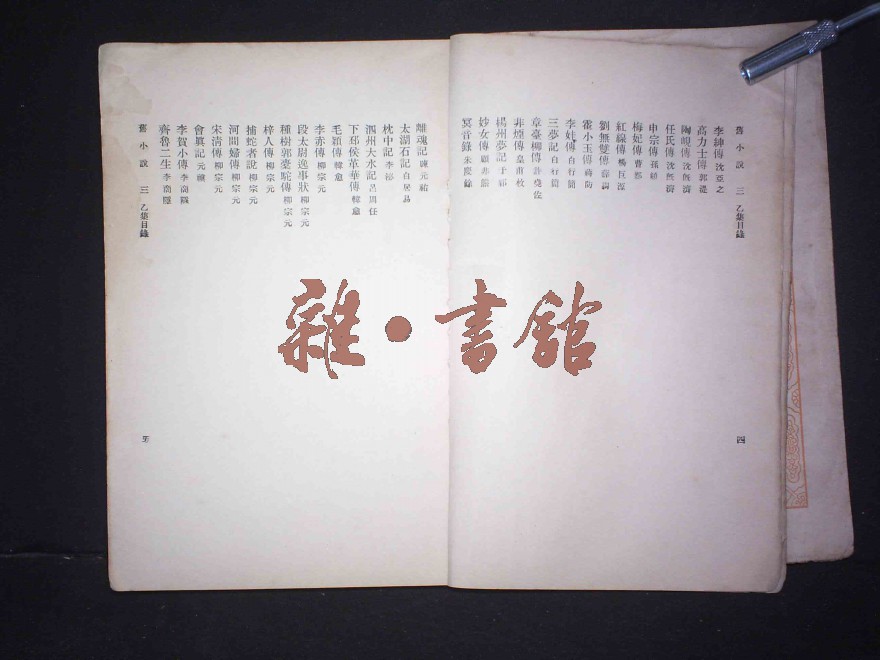 舊小說 三 乙集目錄
李紳傳 沈亞之
高力士傳 郭湜
陶峴傳 沈既濟
任氏傳 沈既濟
申宗傳 孫頠
梅妃傳 曹鄴
紅線傳 楊巨源
劉無雙傳 薛調
霍小玉傳 蔣防
李娃傳 白行簡
三夢記 白行簡
章臺柳傳 許堯佐
非煙傳 皇甫枚
楊州夢記 于鄴
妙女傳 顧非熊
冥音錄 朱慶餘
四
離魂記 陳元祐
太湖石記 白居易
枕中記 李泌
泗州大水記 呂周任
下邳侯革華傳 韓愈
毛穎傳 韓愈
李赤傳 柳宗元
段太尉逸事狀 柳宗元
種樹郭橐駝傳 柳宗元
梓人傳 柳宗元
捕蛇者說 柳宗元
河間婦傳 柳宗元
宋清傳 柳宗元
會真記 元稹
李賀小傳 李商隱
齊魯二生 李商隱
舊小說 三 乙集目錄
五
雜·書館